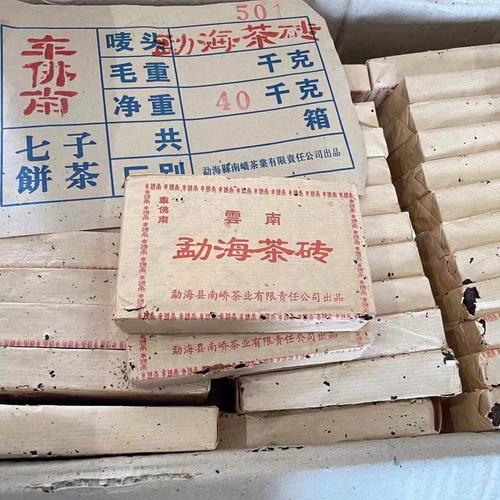 501
车佛南
唛头 勐海茶砖
毛重 千克
净重 40 千克
七子 共 箱
餅茶 厂别 勐海縣南嶠茶業有限責任公司出品
車佛南
雲南
勐海茶砖
勐海县南峤茶业有限责任公司出品
勐海县南峤茶业有限责任公司出品